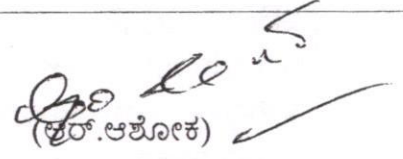 (ಆರ್.ಆಶೋಕ)